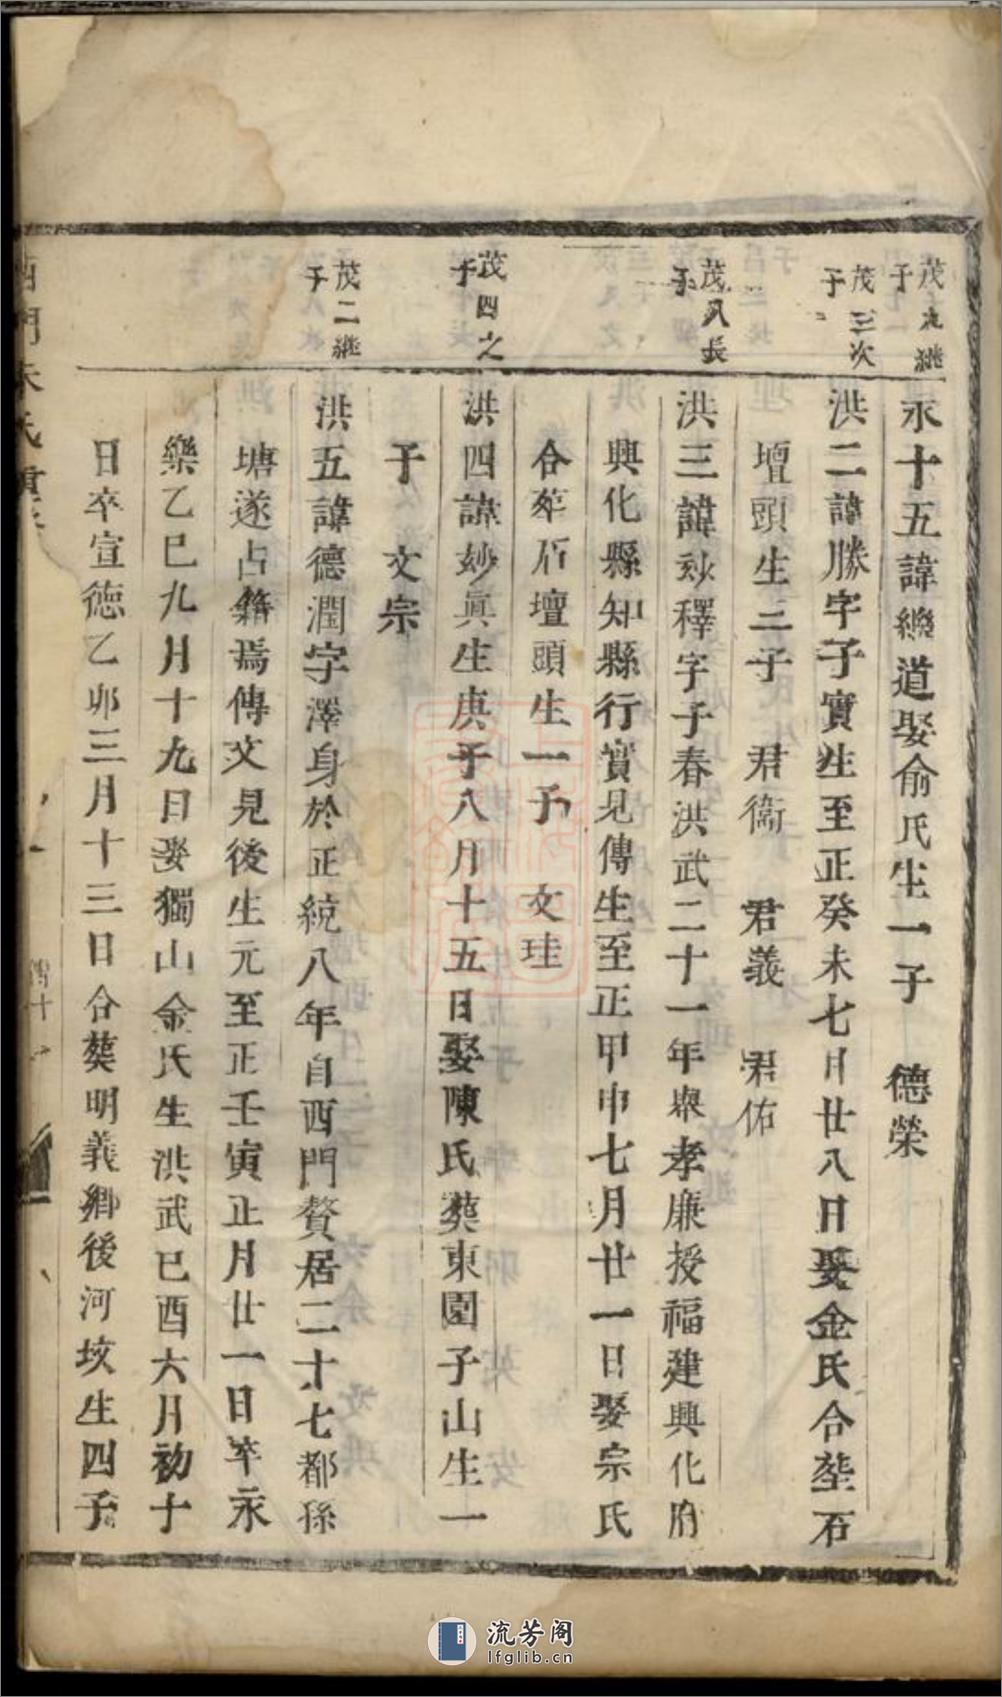 茂九継子
永十五諱繼道娶俞氏生一子　德榮
茂三次子
洪二諱勝字子實生至正癸未七月廿八日娶金氏合塟石
壇頭生三子　君衛　君義　君佑
茂八長子
洪三諱妙釋字子春洪武二十一年舉孝廉授福建興化府
興化縣知縣行實見傳生至正甲申七月廿一日娶宗氏
合葬后壇頭生一子　文珪
茂四之子
洪四諱妙眞生庚子八月十五日娶陳氏葬東園子山生一
子　文宗
茂二継子
洪五諱德潤字澤身於正統八年自西門贅居二十七都孫
塘遂占籍焉傳文見後生元至正壬寅正月廿一日卒永
樂乙巳九月十九日娶獨山金氏生洪武巳酉六月初十
日卒宣德乙卯三月十三日合葬明義鄉後河坟生四子
西門朱氏
流芳阁
lfglib.cn